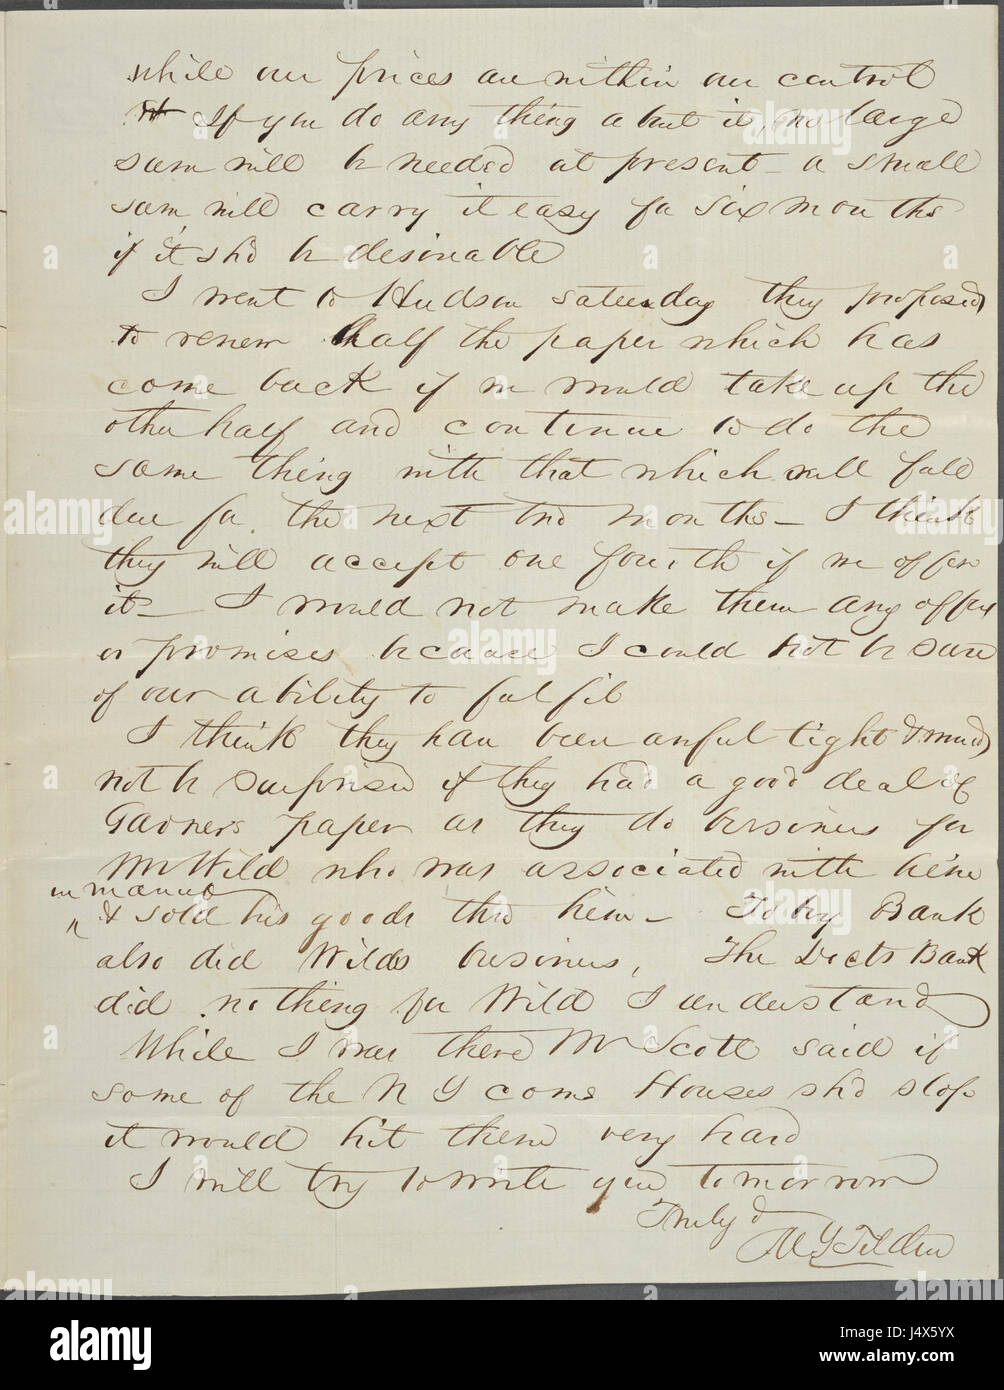 while our prices are within our control
If you do any thing about it, no large
sum will be needed at present - a small
sum, will carry it easy for six months
if it sh'd be desirable
I went to Hudson saturday they proposed
to renew half the paper which has
come back if we would take up the
other half and continue to do the
same thing with that which will fall
due for the next two months - I think
they will accept one fourth if we offer
it - I would not make them any offer
or promises because I could not be sure
of our ability to fulfil
I think they have been awful tight & would
not be surprised if they had a good deal of
Garners paper as they do business for
Mr Wild who was associated with him
in manu
& sold his goods thro him - Toby Bank
also did Wilds business, The Docts Bank
did nothing for Wild I understand
While I was there Mr Scott said if
some of the N Y Coms Houses sh'd stop
it would hit them very hard
I will try to write you tomorrow
Truly &
M Y Tilden
alamy
a
Image ID: J4X5YX
www.alamy.com